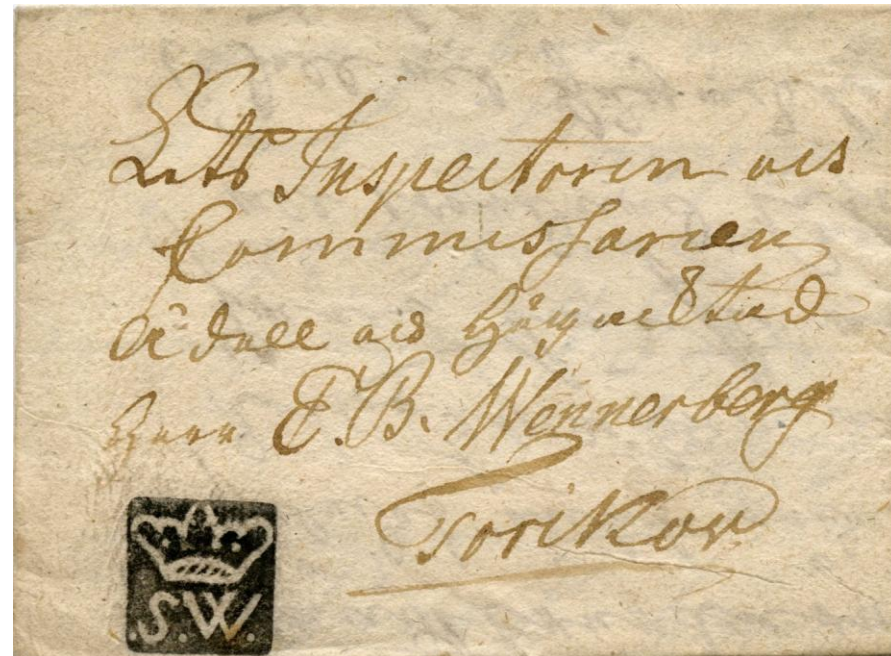 Inspectoren och
Commissarien
Ädell och Högactad
Herr E. B. Wennerberg
Torikov
.S.W.